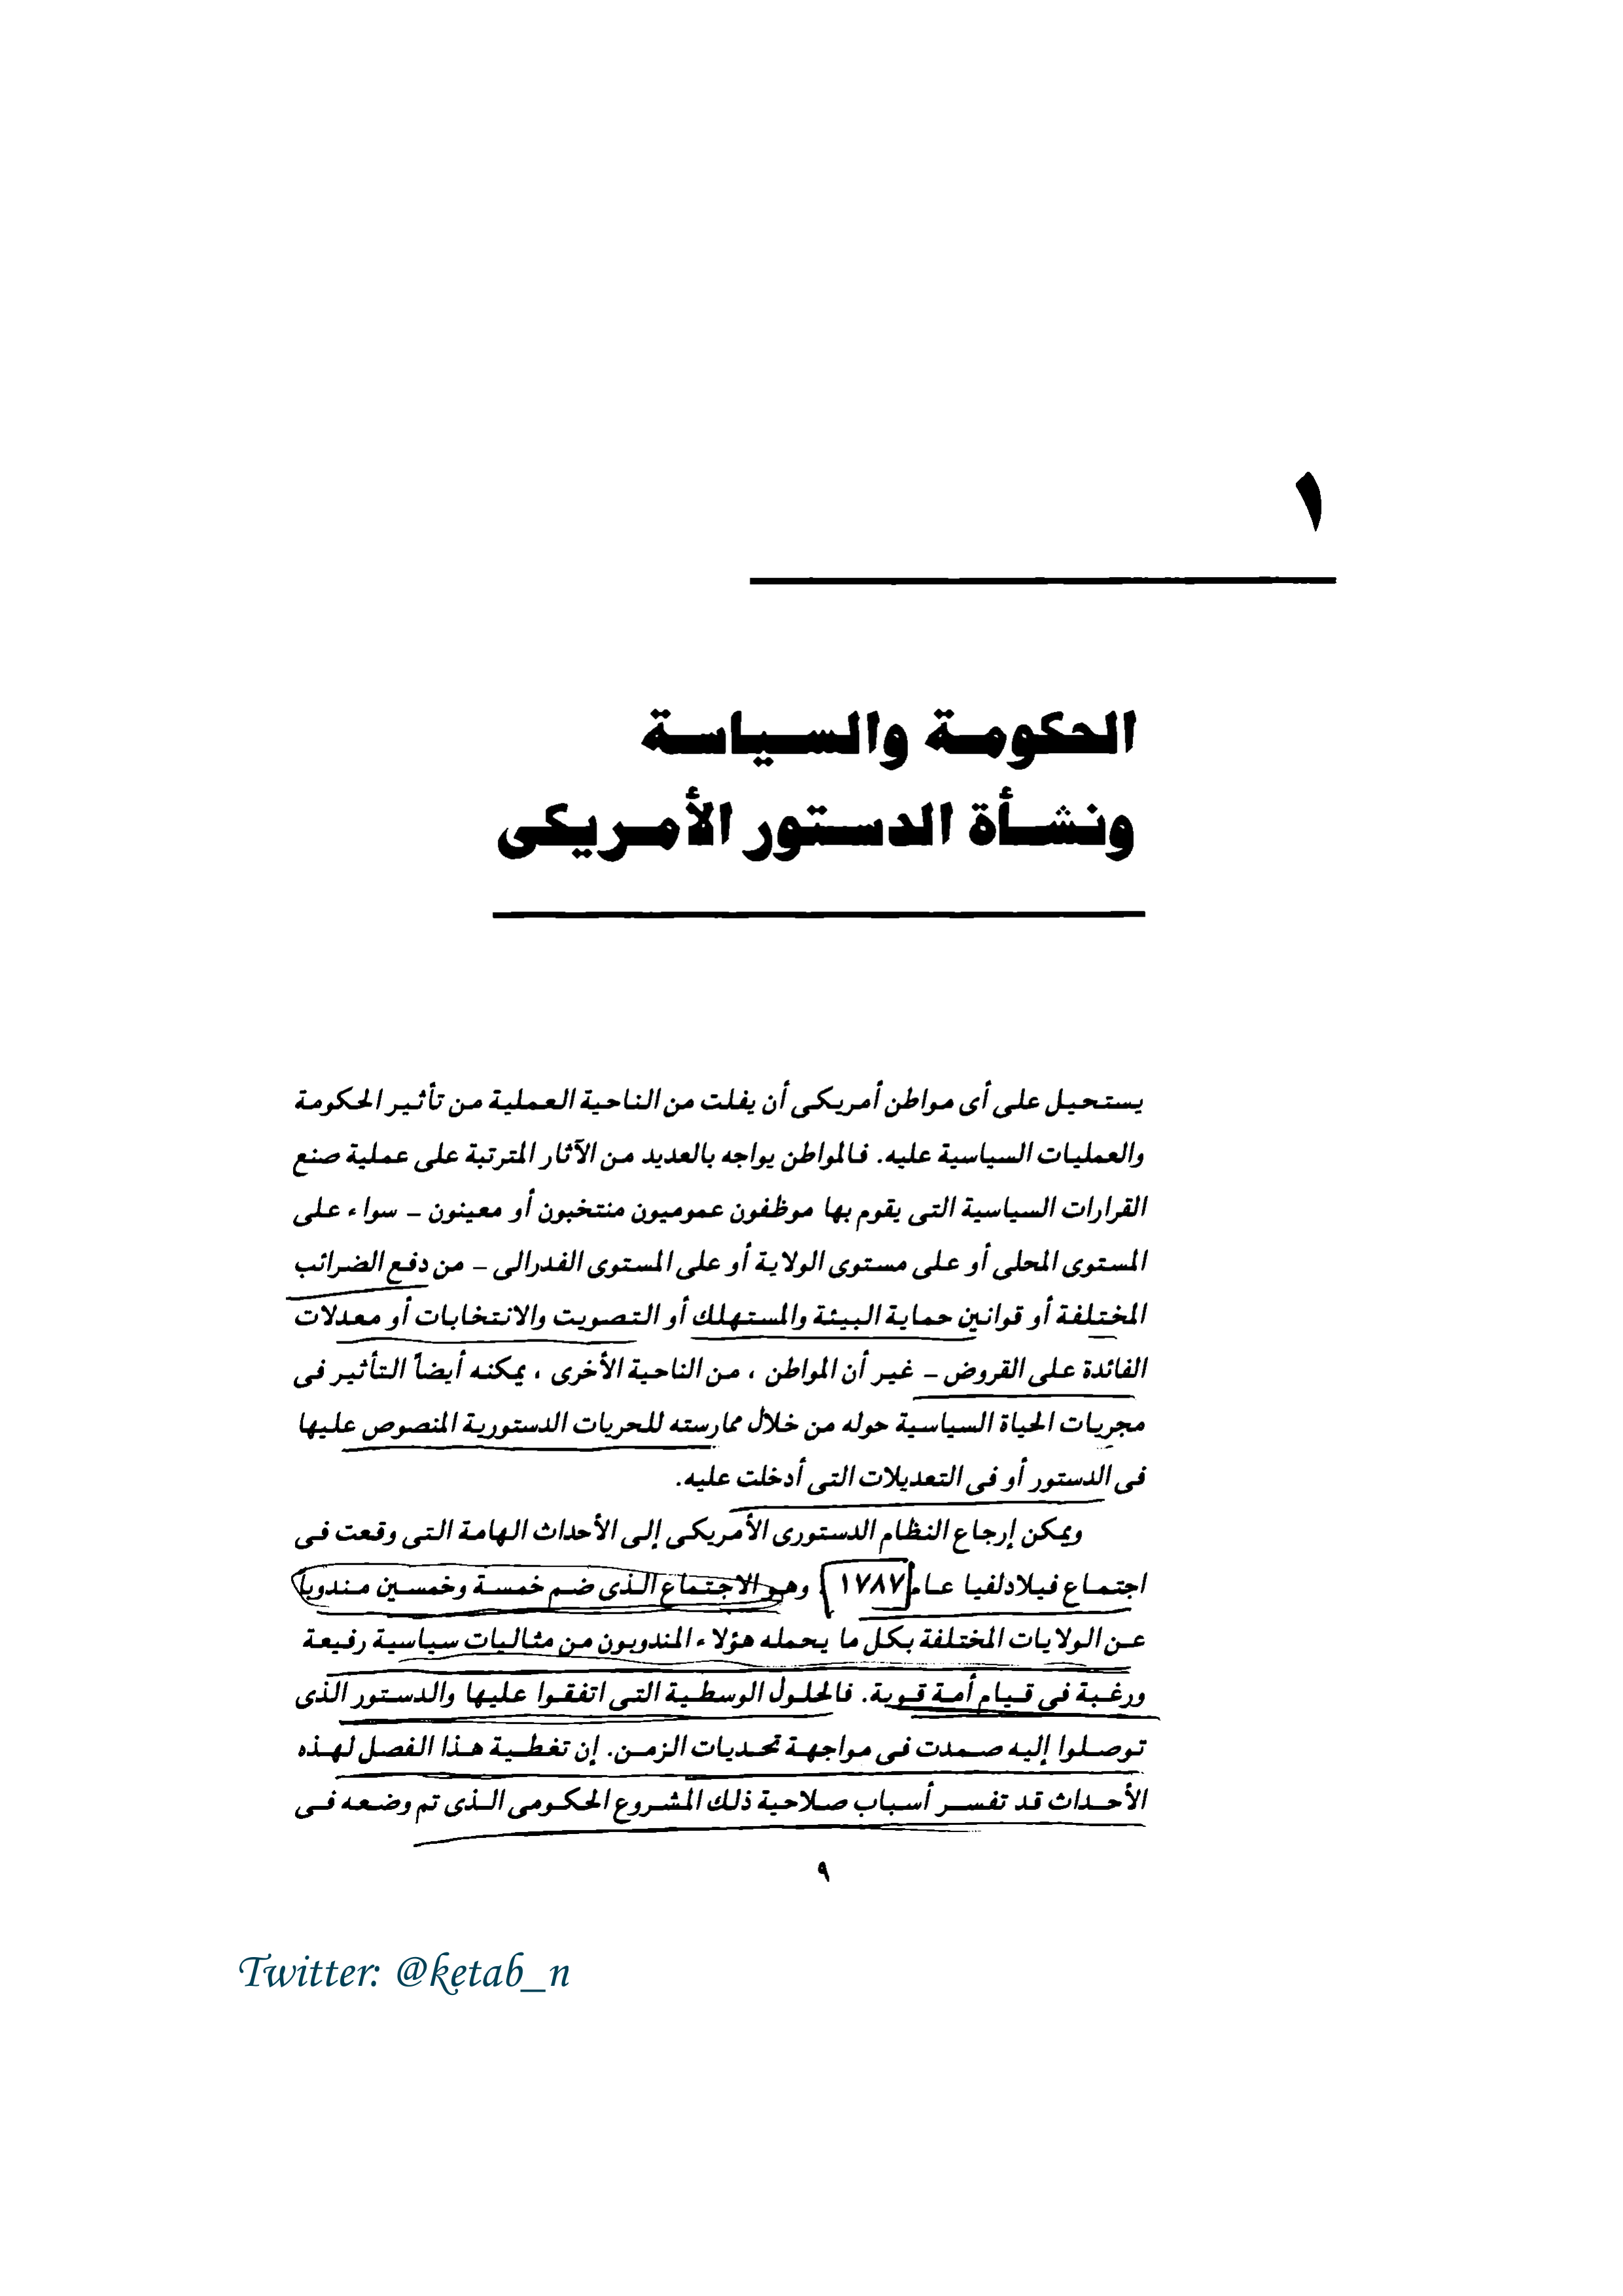 ١
الحكومة والسياسة
ونشأة الدستور الأمريكى
يستحيل على أى مواطن أمريكى أن يفلت من الناحية العملية من تأثير الحكومة
والعمليات السياسية عليه. فالمواطن يواجه بالعديد من الآثار المترتبة على عملية صنع
القرارات السياسية التى يقوم بها موظفون عموميون منتخبون أو معينون – سواء على
المستوى المحلى أو على مستوى الولاية أو على المستوى الفدرالى – من دفع الضرائب
المختلفة أو قوانين حماية البيئة والمستهلك أو التصويت والانتخابات أو معدلات
الفائدة على القروض – غير أن المواطن ، من الناحية الأخرى ، يمكنه أيضاً التأثير فى
مجريات الحياة السياسية حوله من خلال ممارسته للحريات الدستورية المنصوص عليها
فى الدستور أو فى التعديلات التى أدخلت عليه.
ويمكن إرجاع النظام الدستورى الأمريكى إلى الأحداث الهامة التى وقعت فى
اجتماع فيلادلفيا عام ١٧٨٧ وهو الاجتماع الذى ضم خمسة وخمسين مندوباً
عن الولايات المختلفة بكل ما يحمله هؤلاء المندوبون من مثاليات سياسية رفيعة
ورغبة فى قيام أمة قوية. فالحلول الوسطية التى اتفقوا عليها والدستور الذى
توصلوا إليه صمدت فى مواجهة تحديات الزمن. إن تغطية هذا الفصل لهذه
الأحداث قد تفسر أسباب صلاحية ذلك المشروع الحكومى الذى تم وضعه فى
٩
Twitter: @ketab_n